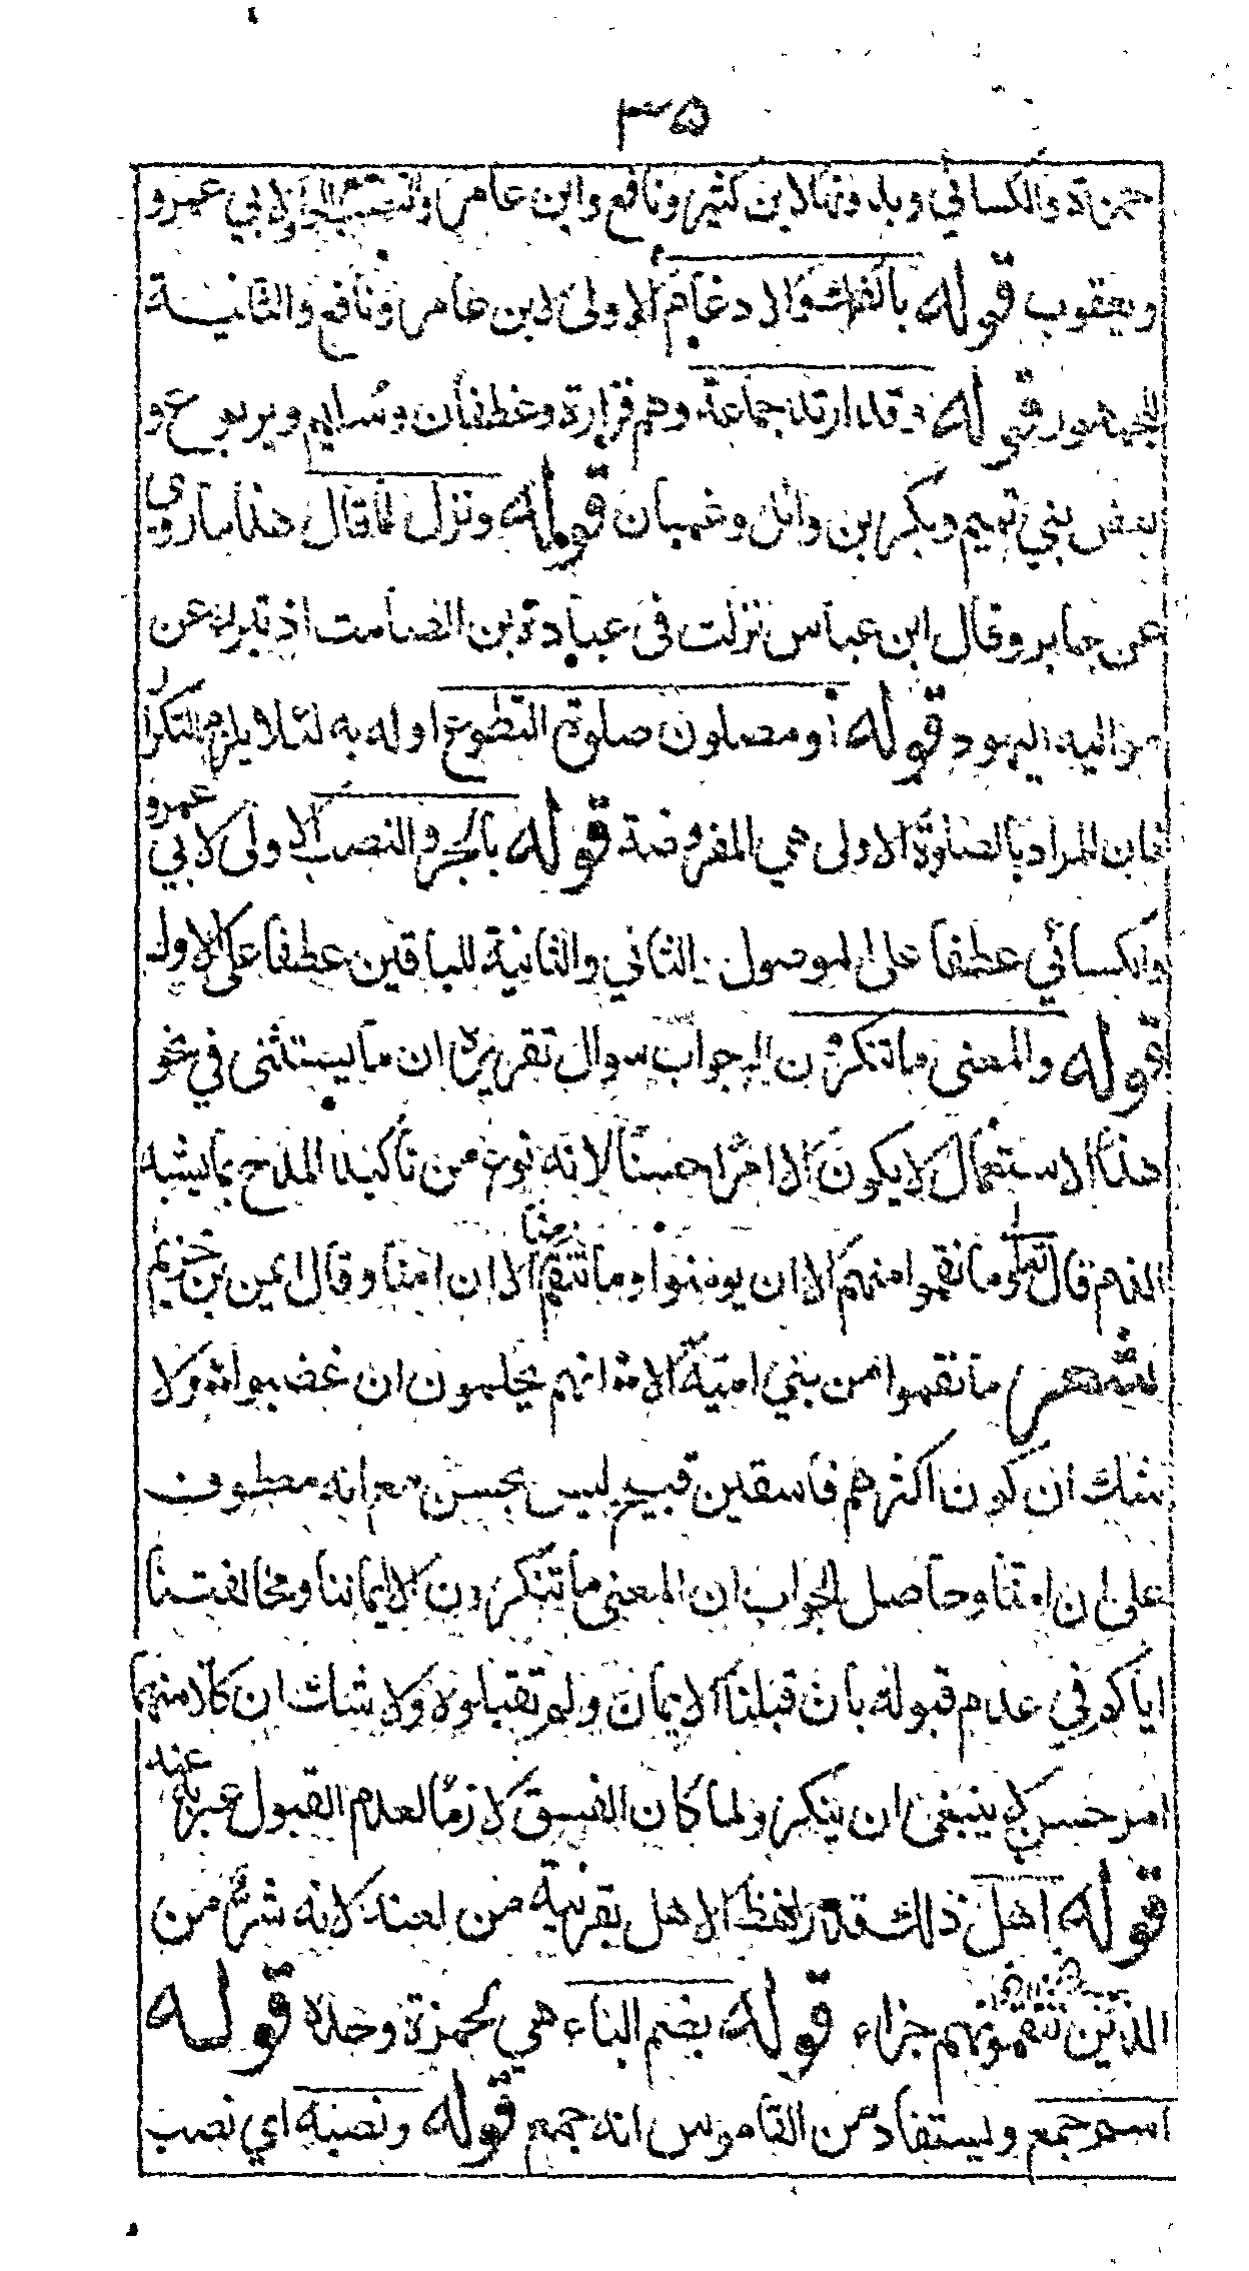 ٣٥
حمزة والكسائي وبدونها لابن كثير ونافع وابن عامر والنصب لابي عمرو
ويعقوب قوله بالفك والادغام الاولى لابن عامر ونافع والثانية
للجمهور قوله وقد ارتد جماعة وهم فزارة وغطفان وسليم ويربوع و
بعض بني تميم وبكر بن وائل وغسان قوله ونزل لما قال هذا ما روي
عن جابر وقال ابن عباس نزلت في عبادة بن الصامت اذ تبرء عن
موالیه اليهود قوله او مصلون صلوة التطوع اوله به لئلا يلزم التكرار
فان المراد بالصلوة الاولى هي المفروضة قوله بالجر والنصب الاولى لابي عمرو
والكسائي عطفا على الموصول الثاني والثانية للباقين عطفا على الاول
قوله والمعنى ما تنكرون الى جواب سوال تقريره ان ما يستثنى في نحو
هذا الاستعمال لا يكون الا امرا حسنا لانه نوع من تأكيد المدح بما يشبه
الذم قال تعالى وما نقموا منهم الا ان يومنوا وما تنقم منا الا ان امنا وقال ايمن بن خزيم
شعر ما نقموا من بني امية الا انهم يحلمون ان غضبوا ولا
شك ان كون اكثرهم فاسقين قبيح ليس بحسن مع انه معطوف
على ان امنا وحاصل الجواب ان المعنى ما تنكرون الا ايماننا ومخالفتنا
اياكم في عدم قبوله بان قبلنا الايمان ولم تقبلوه ولا شك ان كلا منهما
امر حسن لا ينبغي ان ينكر ولما كان الفسق لازما لعدم القبول عبر به عنه
قوله اهل ذلك قدر لفظ الاهل بقرنية من لعنه لانه شر من
الذين تنقمونهم جزاء قوله بضم الباء هي لحمزة وحده قوله
اسم جمع ويستفاد من القاموس انه جمع قوله ونصبه اي نصب